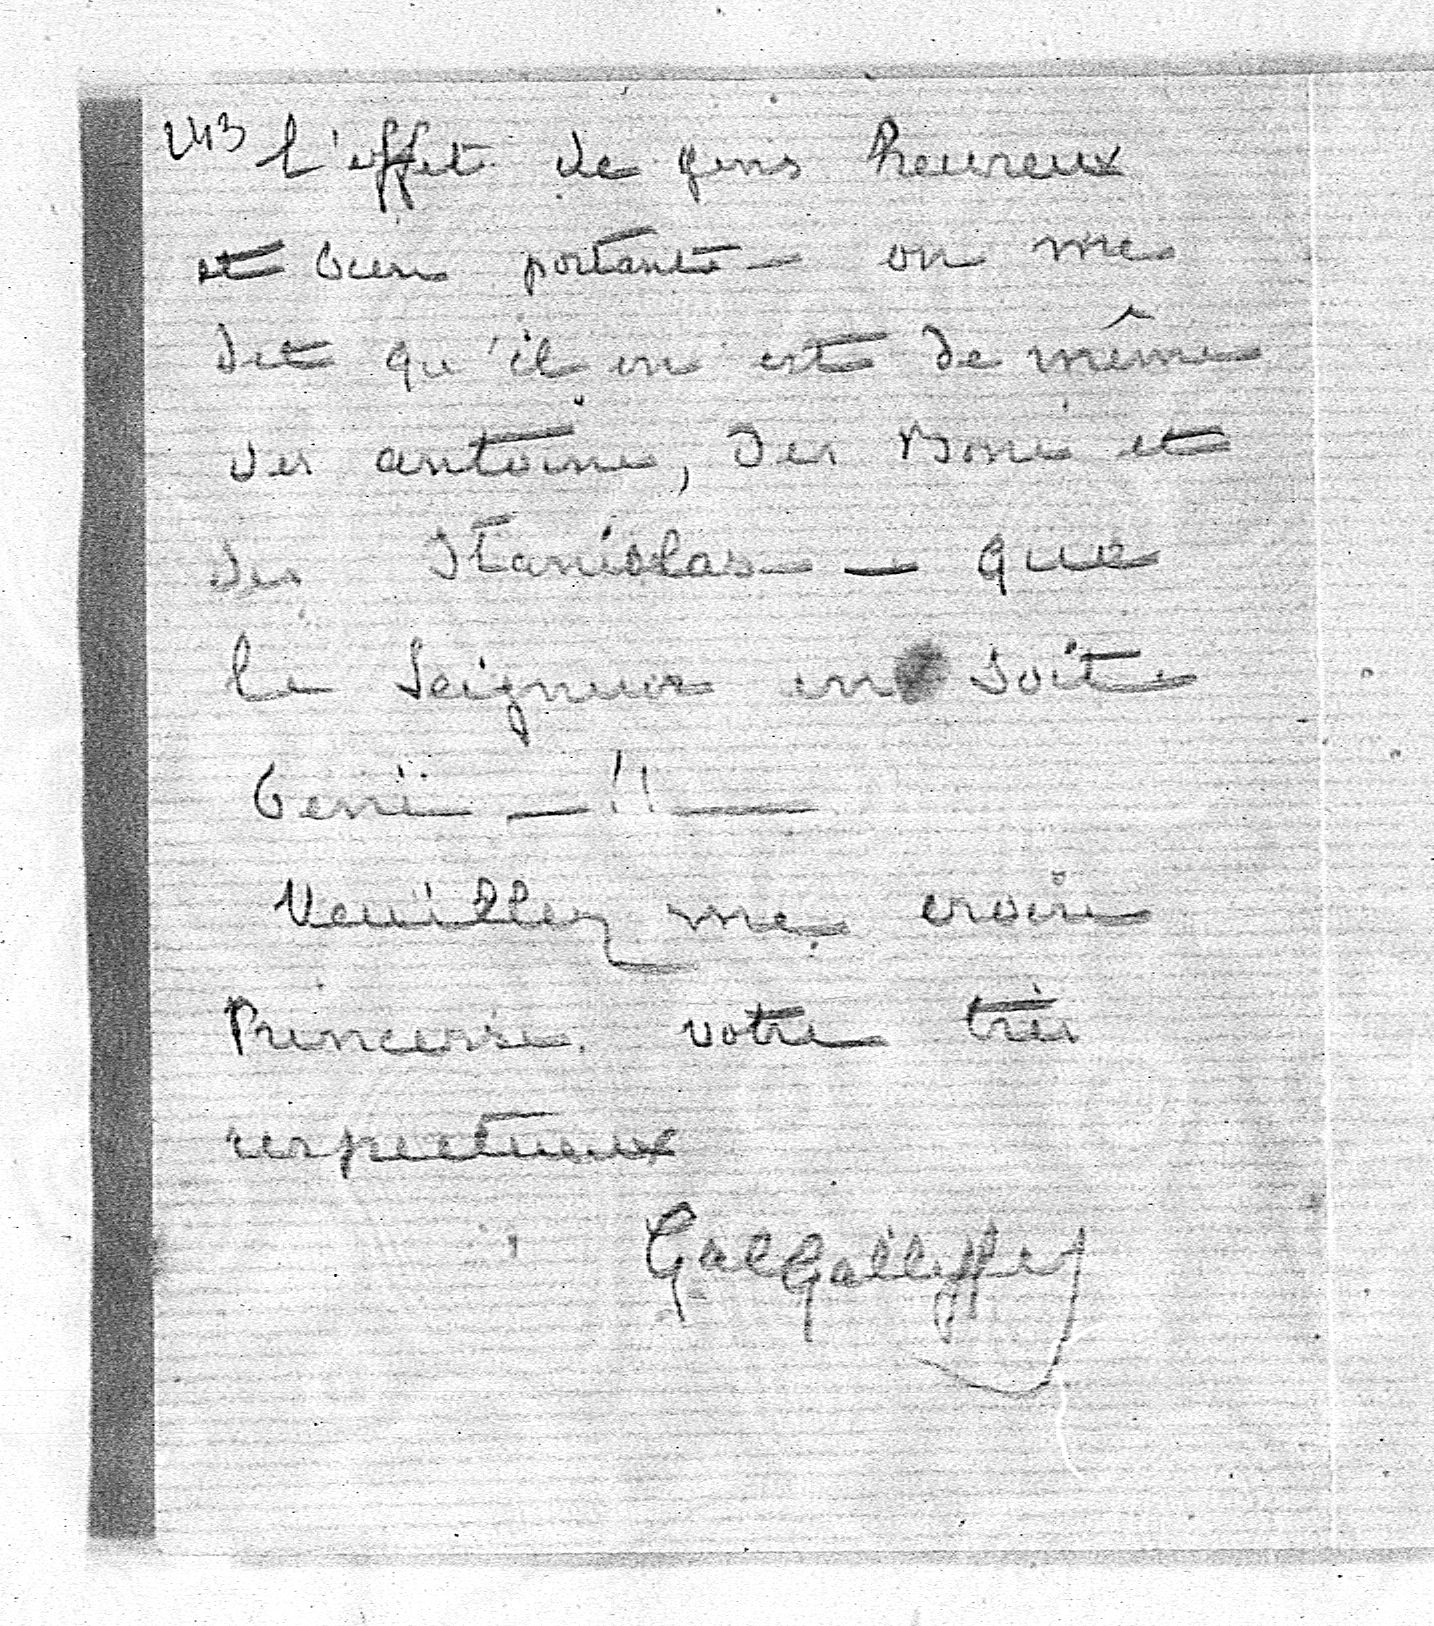 243 l'effet de gens heureux
et bien portants — on me
dit qu'il en est de même
des antoine, des Boni et
des Stanislas — que
le Seigneur en soit
beni — !! —
Veuillez me croire
Princesse, votre très
respectueux
Gal Galliffet